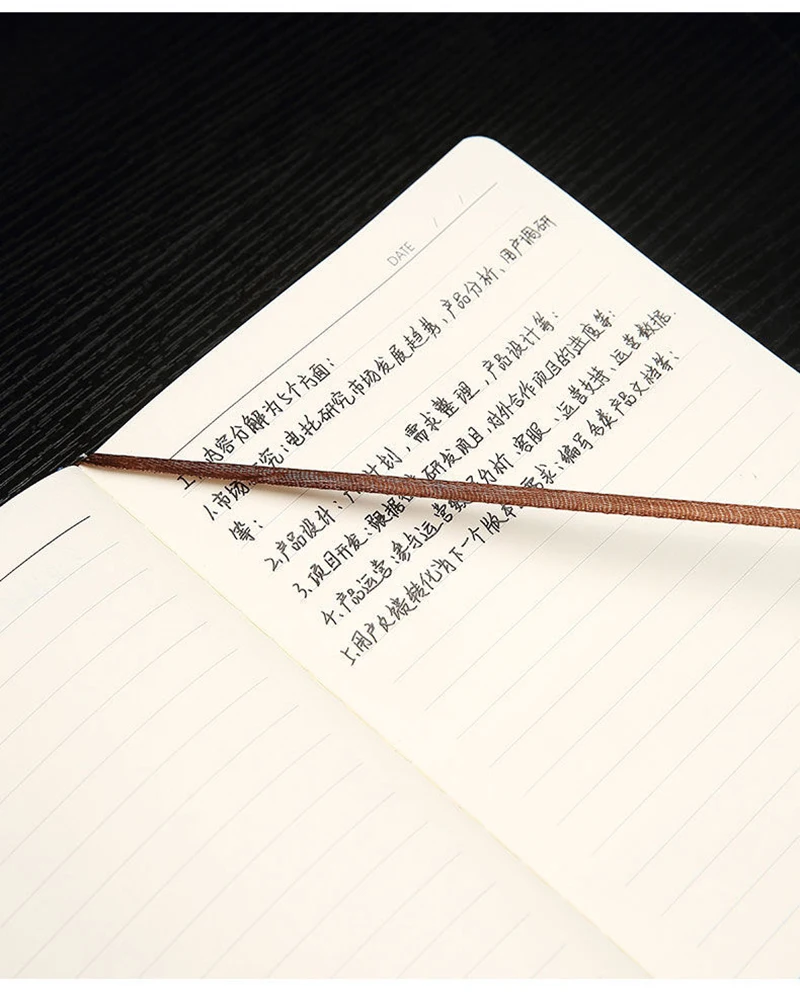 DATE / /
工 内容分解为5个方面:
1.市场 究:包括研究市场发展趋势、产品分析、用户调研
等;
2.产品设计: 计划,需求整理,产品设计等;
3.项目开发:跟据 研发项目,对外合作项目的进度等;
4.产品运营:参与运营数 分析 客服、运营支持、运营数据.
5.用户反馈转化为下一个版本 需求;编写各类产品文档等;